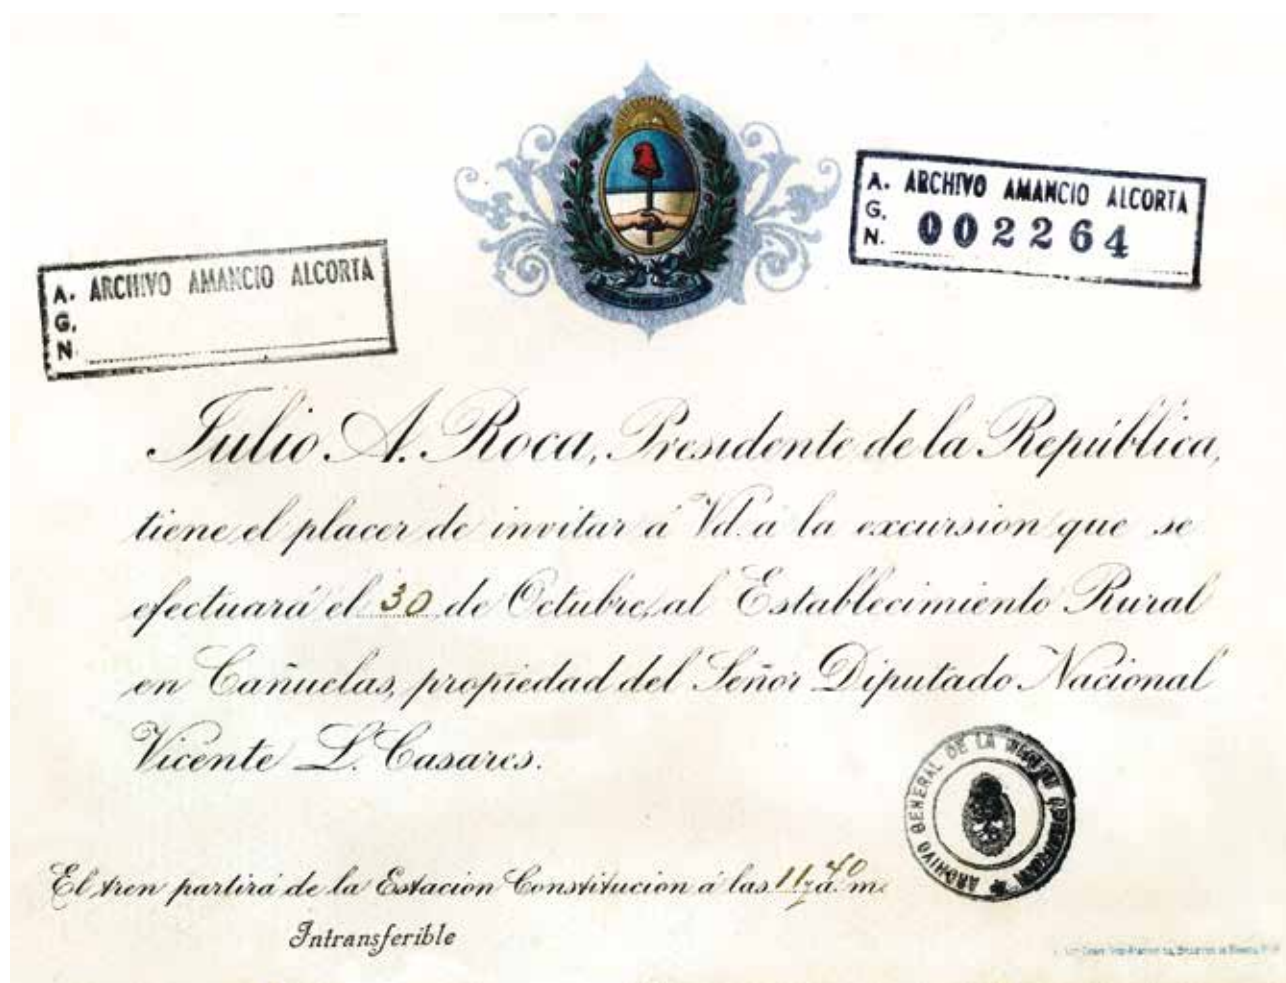 A. ARCHIVO AMANCIO ALCORTA
G. 002264
N.
A. ARCHIVO AMANCIO ALCORTA
G.
N.
Julio A. Roca, Presidente de la República,
tiene el placer de invitar á Vd. á la excursion que se
efectuará el 30 de Octubre, al Establecimiento Rural
en Cañuelas, propiedad del Señor Diputado Nacional
Vicente L. Casares.
ARCHIVO GENERAL DE LA
El tren partirá de la Estacion Constitucion á las 11,40 a. m.
Intransferible